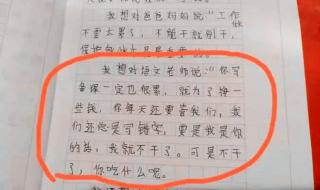 我想对爸爸妈妈说："工作
不要太累了，不能干就别干，
我想对语文老师说："你写
备课一定也很累，就为了挣一
些钱，你每天还要管我们，我
们还总是写错字，要是我是你
的话，我就不干了。可是不干
了，你吃什么呢。